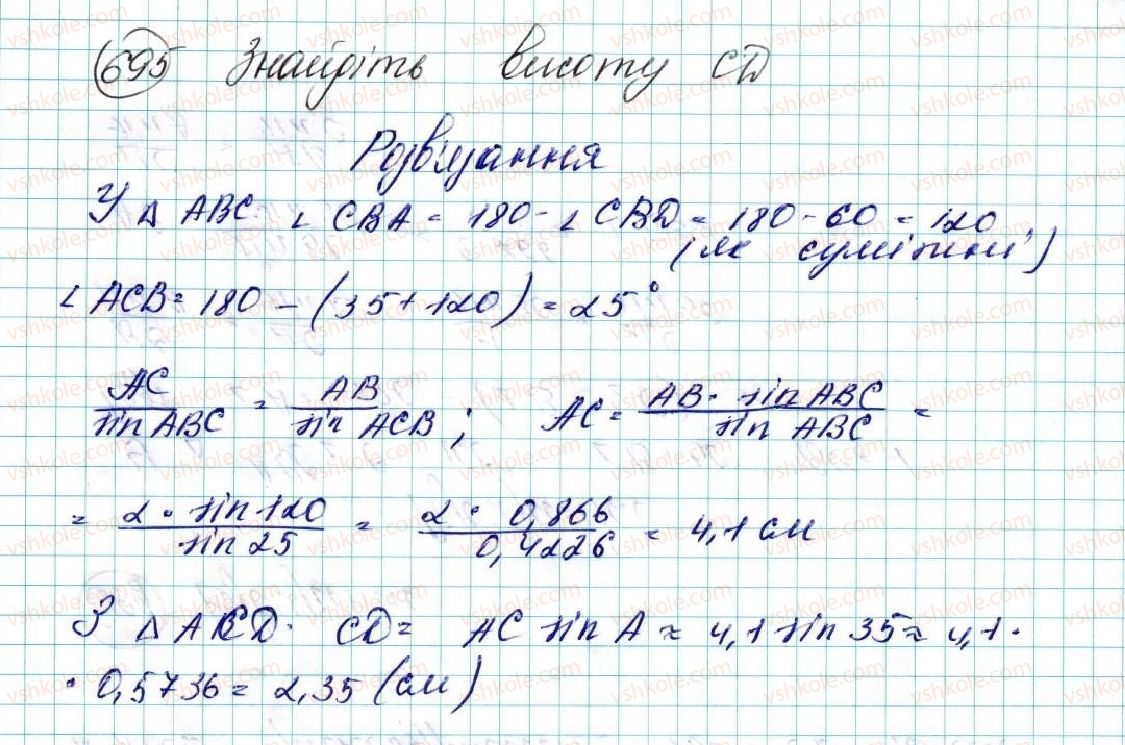 695 Знайдіть висоту CD
Розв'язання
У △ ABC ∠ CBA = 180 - ∠ CBD = 180 - 60 = 120,
(як суміжні)
∠ ACB = 180 - (35 + 120) = 25°
AC / sin ABC = AB / sin ACB ; AC = AB · sin ABC / sin ABC =
= 2 · sin 120 / sin 25 = 2 · 0,866 / 0,4226 = 4,1 см
З △ ACD. CD = AC sin A ≈ 4,1 sin 35 ≈ 4,1 ·
· 0,5736 = 2,35 (см)